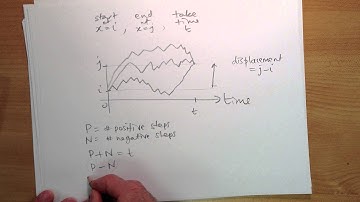 start end take
at at time
x=i , x=j , t
j
displacement
= j-i
i
0
t
time
P = # positive steps
N = # negative steps
P+N = t
P-N